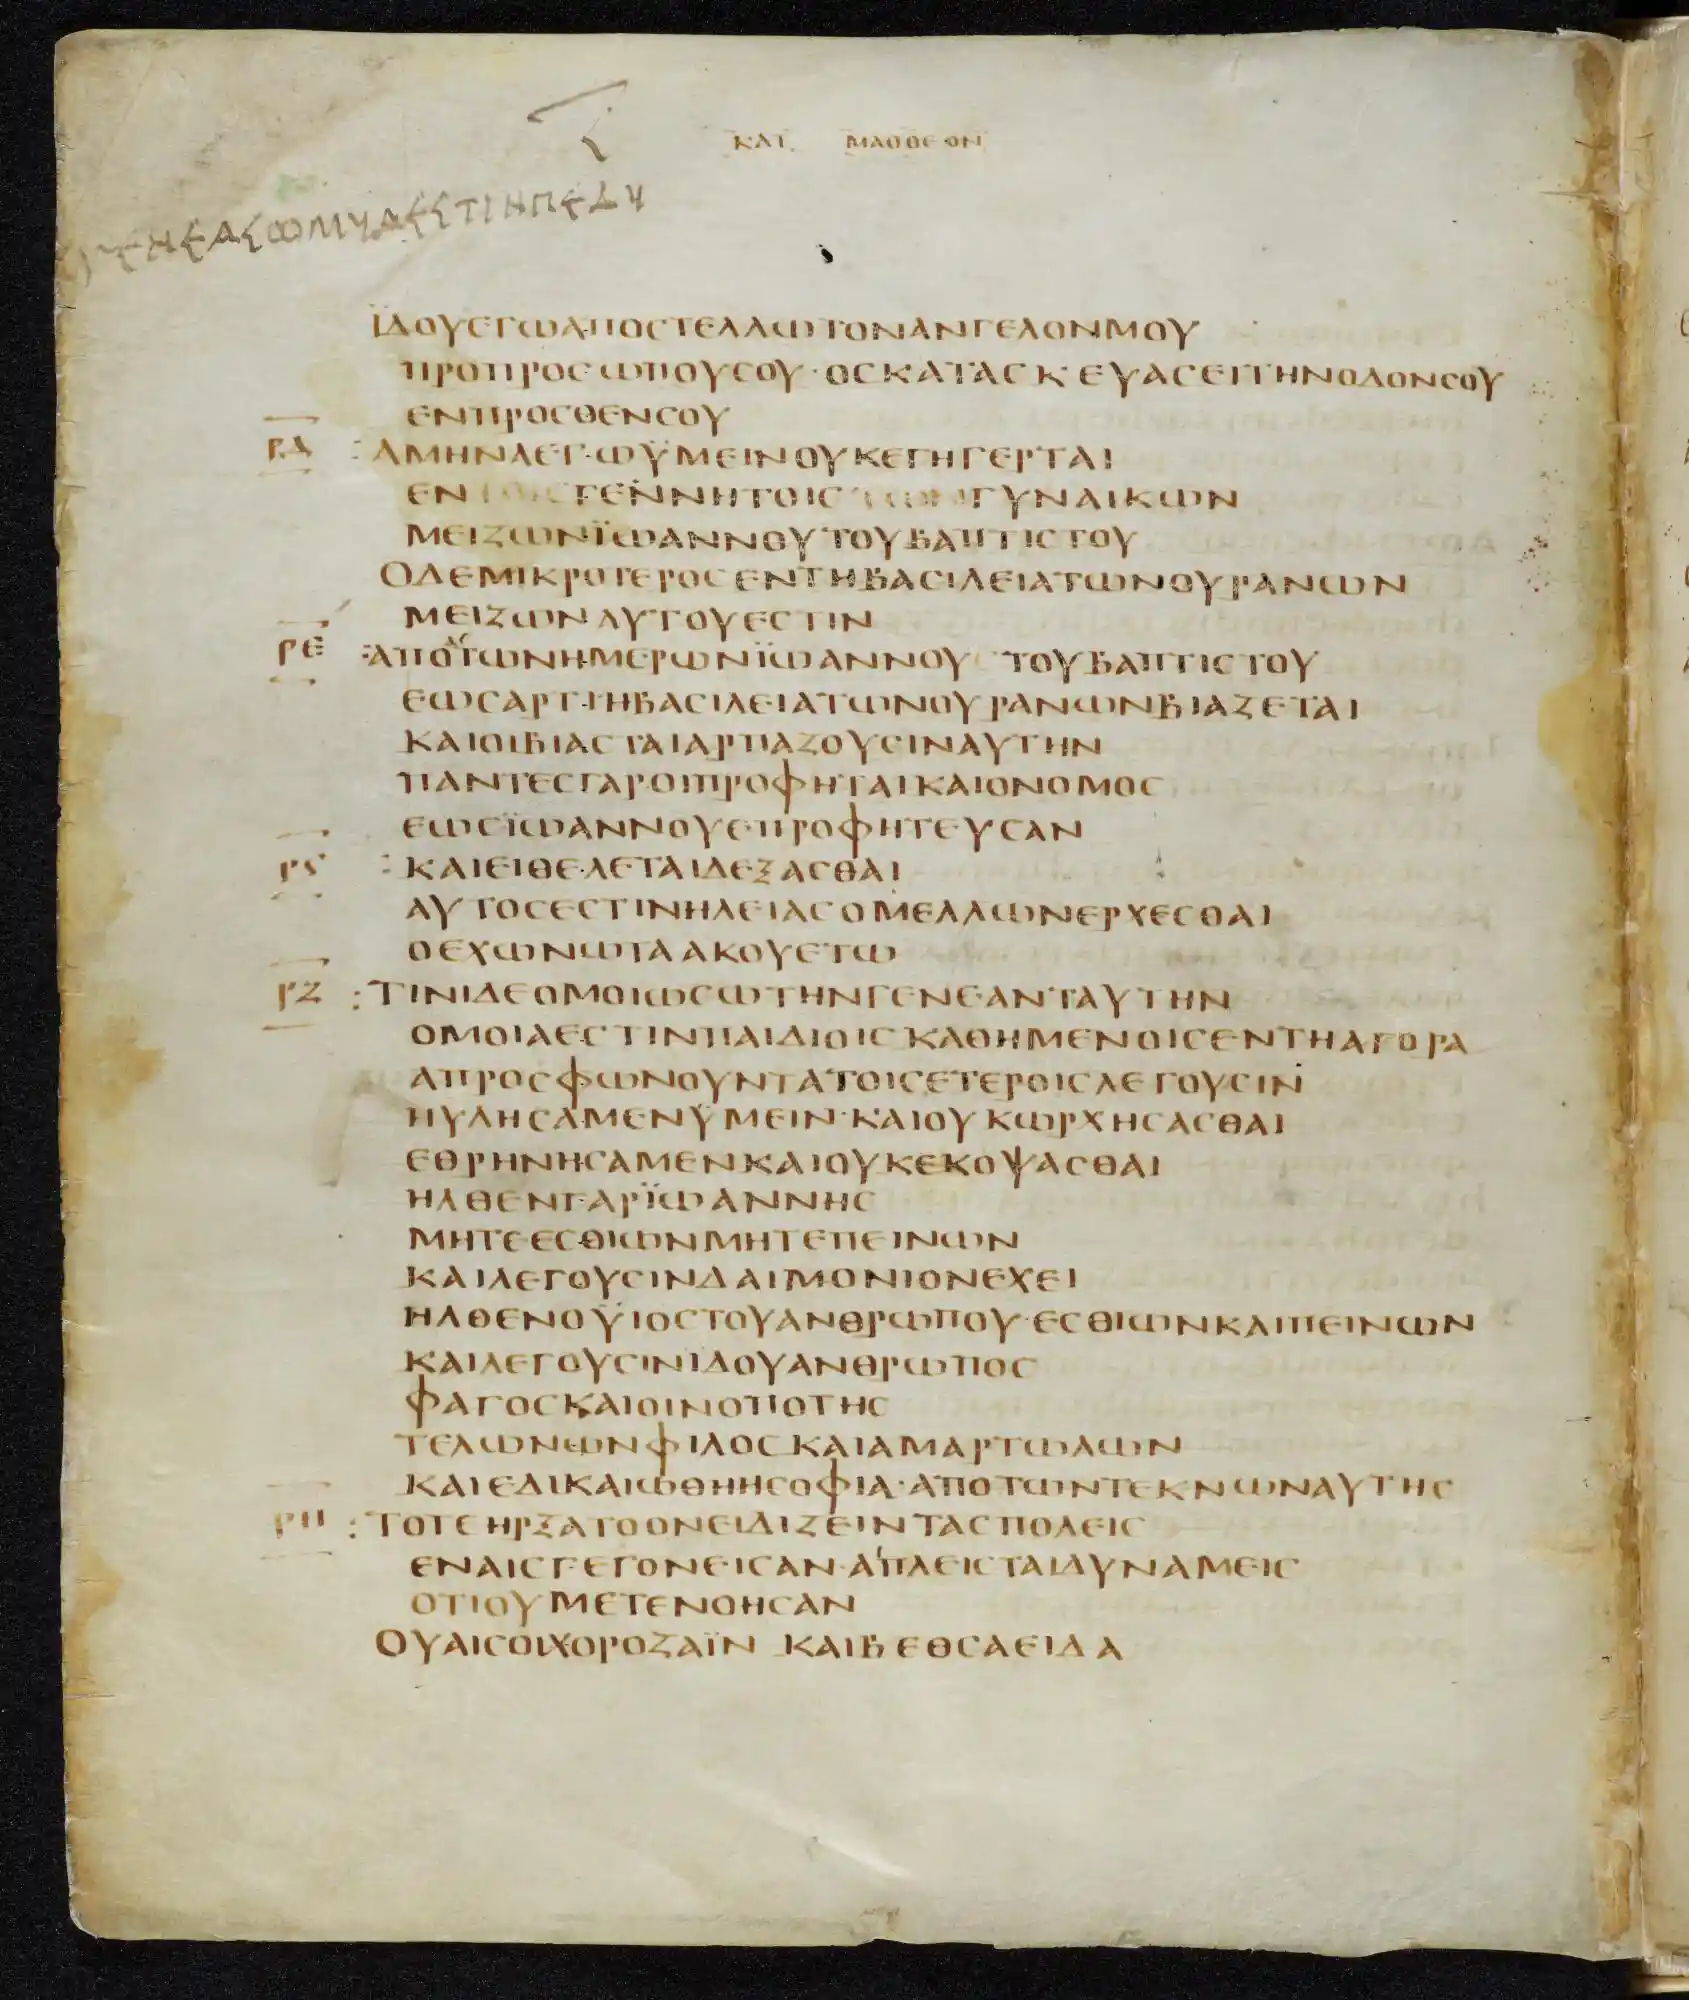 ΚΑΤ ΜΑΘΘΕΟΝ
ΪΔΟΥΕΓΩΑΠΟΣΤΕΛΛΩΤΟΝΑΝΓΕΛΟΝΜΟΥ
ΠΡΟΠΡΟΣΩΠΟΥΣΟΥ·ΟΣΚΑΤΑΣΚΕΥΑΣΕΙΤΗΝΟΔΟΝΣΟΥ
ΕΝΠΡΟΣΘΕΝΣΟΥ
ΡΔ :ΑΜΗΝΛΕΓΩΫΜΕΙΝΟΥΚΕΓΗΓΕΡΤΑΙ
ΕΝΤΟΙΣΓΕΝΝΗΤΟΙΣΤΩΝΓΥΝΑΙΚΩΝ
ΜΕΙΖΩΝΪΩΑΝΝΟΥΤΟΥΒΑΠΤΙΣΤΟΥ
ΟΔΕΜΙΚΡΟΤΕΡΟΣΕΝΤΗΒΑΣΙΛΕΙΑΤΩΝΟΥΡΑΝΩΝ
ΜΕΙΖΩΝΑΥΤΟΥΕΣΤΙΝ
ΡΕ :ΑΠΟΤΩΝΗΜΕΡΩΝΪΩΑΝΝΟΥ ΤΟΥΒΑΠΤΙΣΤΟΥ
ΕΩΣΑΡΤΙΗΒΑΣΙΛΕΙΑΤΩΝΟΥΡΑΝΩΝΒΙΑΖΕΤΑΙ
ΚΑΙΟΙΒΙΑΣΤΑΙΑΡΠΑΖΟΥΣΙΝΑΥΤΗΝ
ΠΑΝΤΕΣΓΑΡΟΙΠΡΟΦΗΤΑΙΚΑΙΟΝΟΜΟΣ
ΕΩΣΪΩΑΝΝΟΥΕΠΡΟΦΗΤΕΥΣΑΝ
ΡϚ :ΚΑΙΕΙΘΕΛΕΤΑΙΔΕΞΑΣΘΑΙ
ΑΥΤΟΣΕΣΤΙΝΗΛΕΙΑΣΟΜΕΛΛΩΝΕΡΧΕΣΘΑΙ
ΟΕΧΩΝΩΤΑΑΚΟΥΕΤΩ
ΡΖ :ΤΙΝΙΔΕΟΜΟΙΩΣΩΤΗΝΓΕΝΕΑΝΤΑΥΤΗΝ
ΟΜΟΙΑΕΣΤΙΝΠΑΙΔΙΟΙΣΚΑΘΗΜΕΝΟΙΣΕΝΤΗΑΓΟΡΑ
ΑΠΡΟΣΦΩΝΟΥΝΤΑΤΟΙΣΕΤΕΡΟΙΣΛΕΓΟΥΣΙΝ
ΗΥΛΗΣΑΜΕΝΫΜΕΙΝ·ΚΑΙΟΥΚΩΡΧΗΣΑΣΘΑΙ
ΕΘΡΗΝΗΣΑΜΕΝΚΑΙΟΥΚΕΚΟΨΑΣΘΑΙ
ΗΛΘΕΝΓΑΡΪΩΑΝΝΗΣ
ΜΗΤΕΕΣΘΙΩΝΜΗΤΕΠΕΙΝΩΝ
ΚΑΙΛΕΓΟΥΣΙΝΔΑΙΜΟΝΙΟΝΕΧΕΙ
ΗΛΘΕΝΟΫΙΟΣΤΟΥΑΝΘΡΩΠΟΥ·ΕΣΘΙΩΝΚΑΙΠΕΙΝΩΝ
ΚΑΙΛΕΓΟΥΣΙΝΙΔΟΥΑΝΘΡΩΠΟΣ
ΦΑΓΟΣΚΑΙΟΙΝΟΠΟΤΗΣ
ΤΕΛΩΝΩΝΦΙΛΟΣΚΑΙΑΜΑΡΤΩΛΩΝ
ΚΑΙΕΔΙΚΑΙΩΘΗΗΣΟΦΙΑ·ΑΠΟΤΩΝΤΕΚΝΩΝΑΥΤΗΣ
ΡΗ :ΤΟΤΕΗΡΞΑΤΟΟΝΕΙΔΙΖΕΙΝΤΑΣΠΟΛΕΙΣ
ΕΝΑΙΣΓΕΓΟΝΕΙΣΑΝ·ΑΙΠΛΕΙΣΤΑΙΔΥΝΑΜΕΙΣ
ΟΤΙΟΥΜΕΤΕΝΟΗΣΑΝ
ΟΥΑΙΣΟΙΧΟΡΟΖΑΪΝ ΚΑΙΒΕΘΣΑΕΙΔΑ